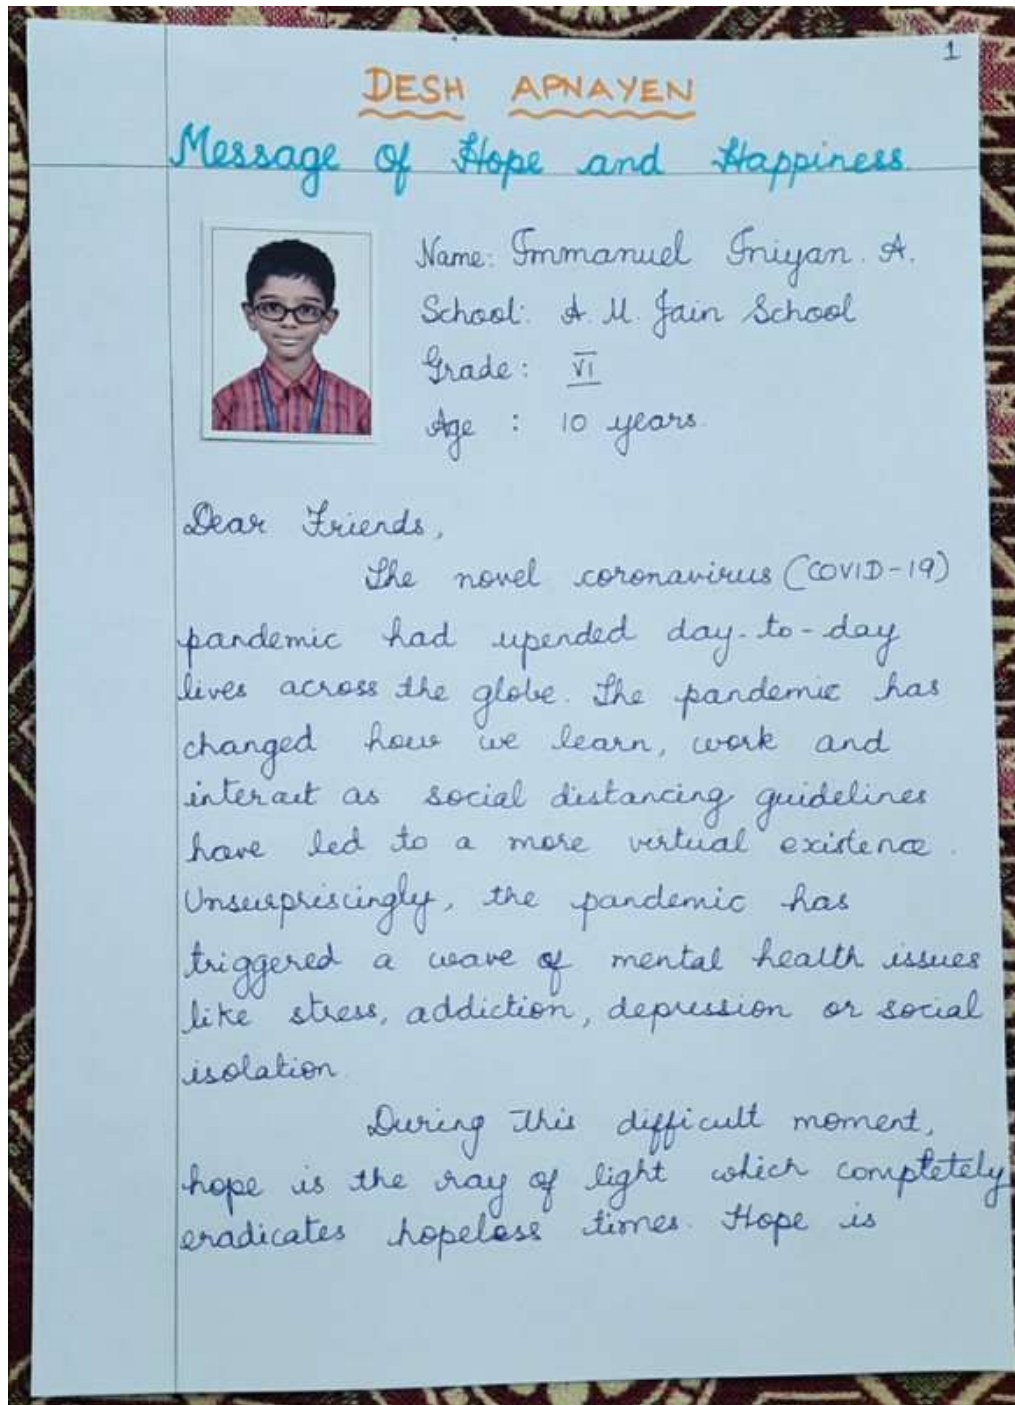 1
DESH APNAYEN
Message of Hope and Happiness
Name: Immanuel Iniyan. A.
School: A. M. Jain School
Grade: VI
Age : 10 years.
Dear Friends,
The novel coronavirus (COVID-19)
pandemic had upended day-to-day
lives across the globe. The pandemic has
changed how we learn, work and
interact as social distancing guidelines
have led to a more virtual existence.
Unsurpriscingly, the pandemic has
triggered a wave of mental health issues
like stress, addiction, depression or social
isolation.
During this difficult moment,
hope is the ray of light which completely
eradicates hopeless times. Hope is